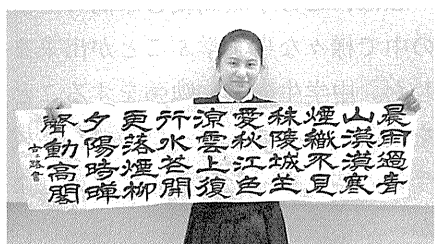 晨雨過青
山漠漠寒
煙織不見
秣陵城坐
愛秋江色
涼雲上復
行水花開
更落煙柳
夕陽時蟬
聲動高閣